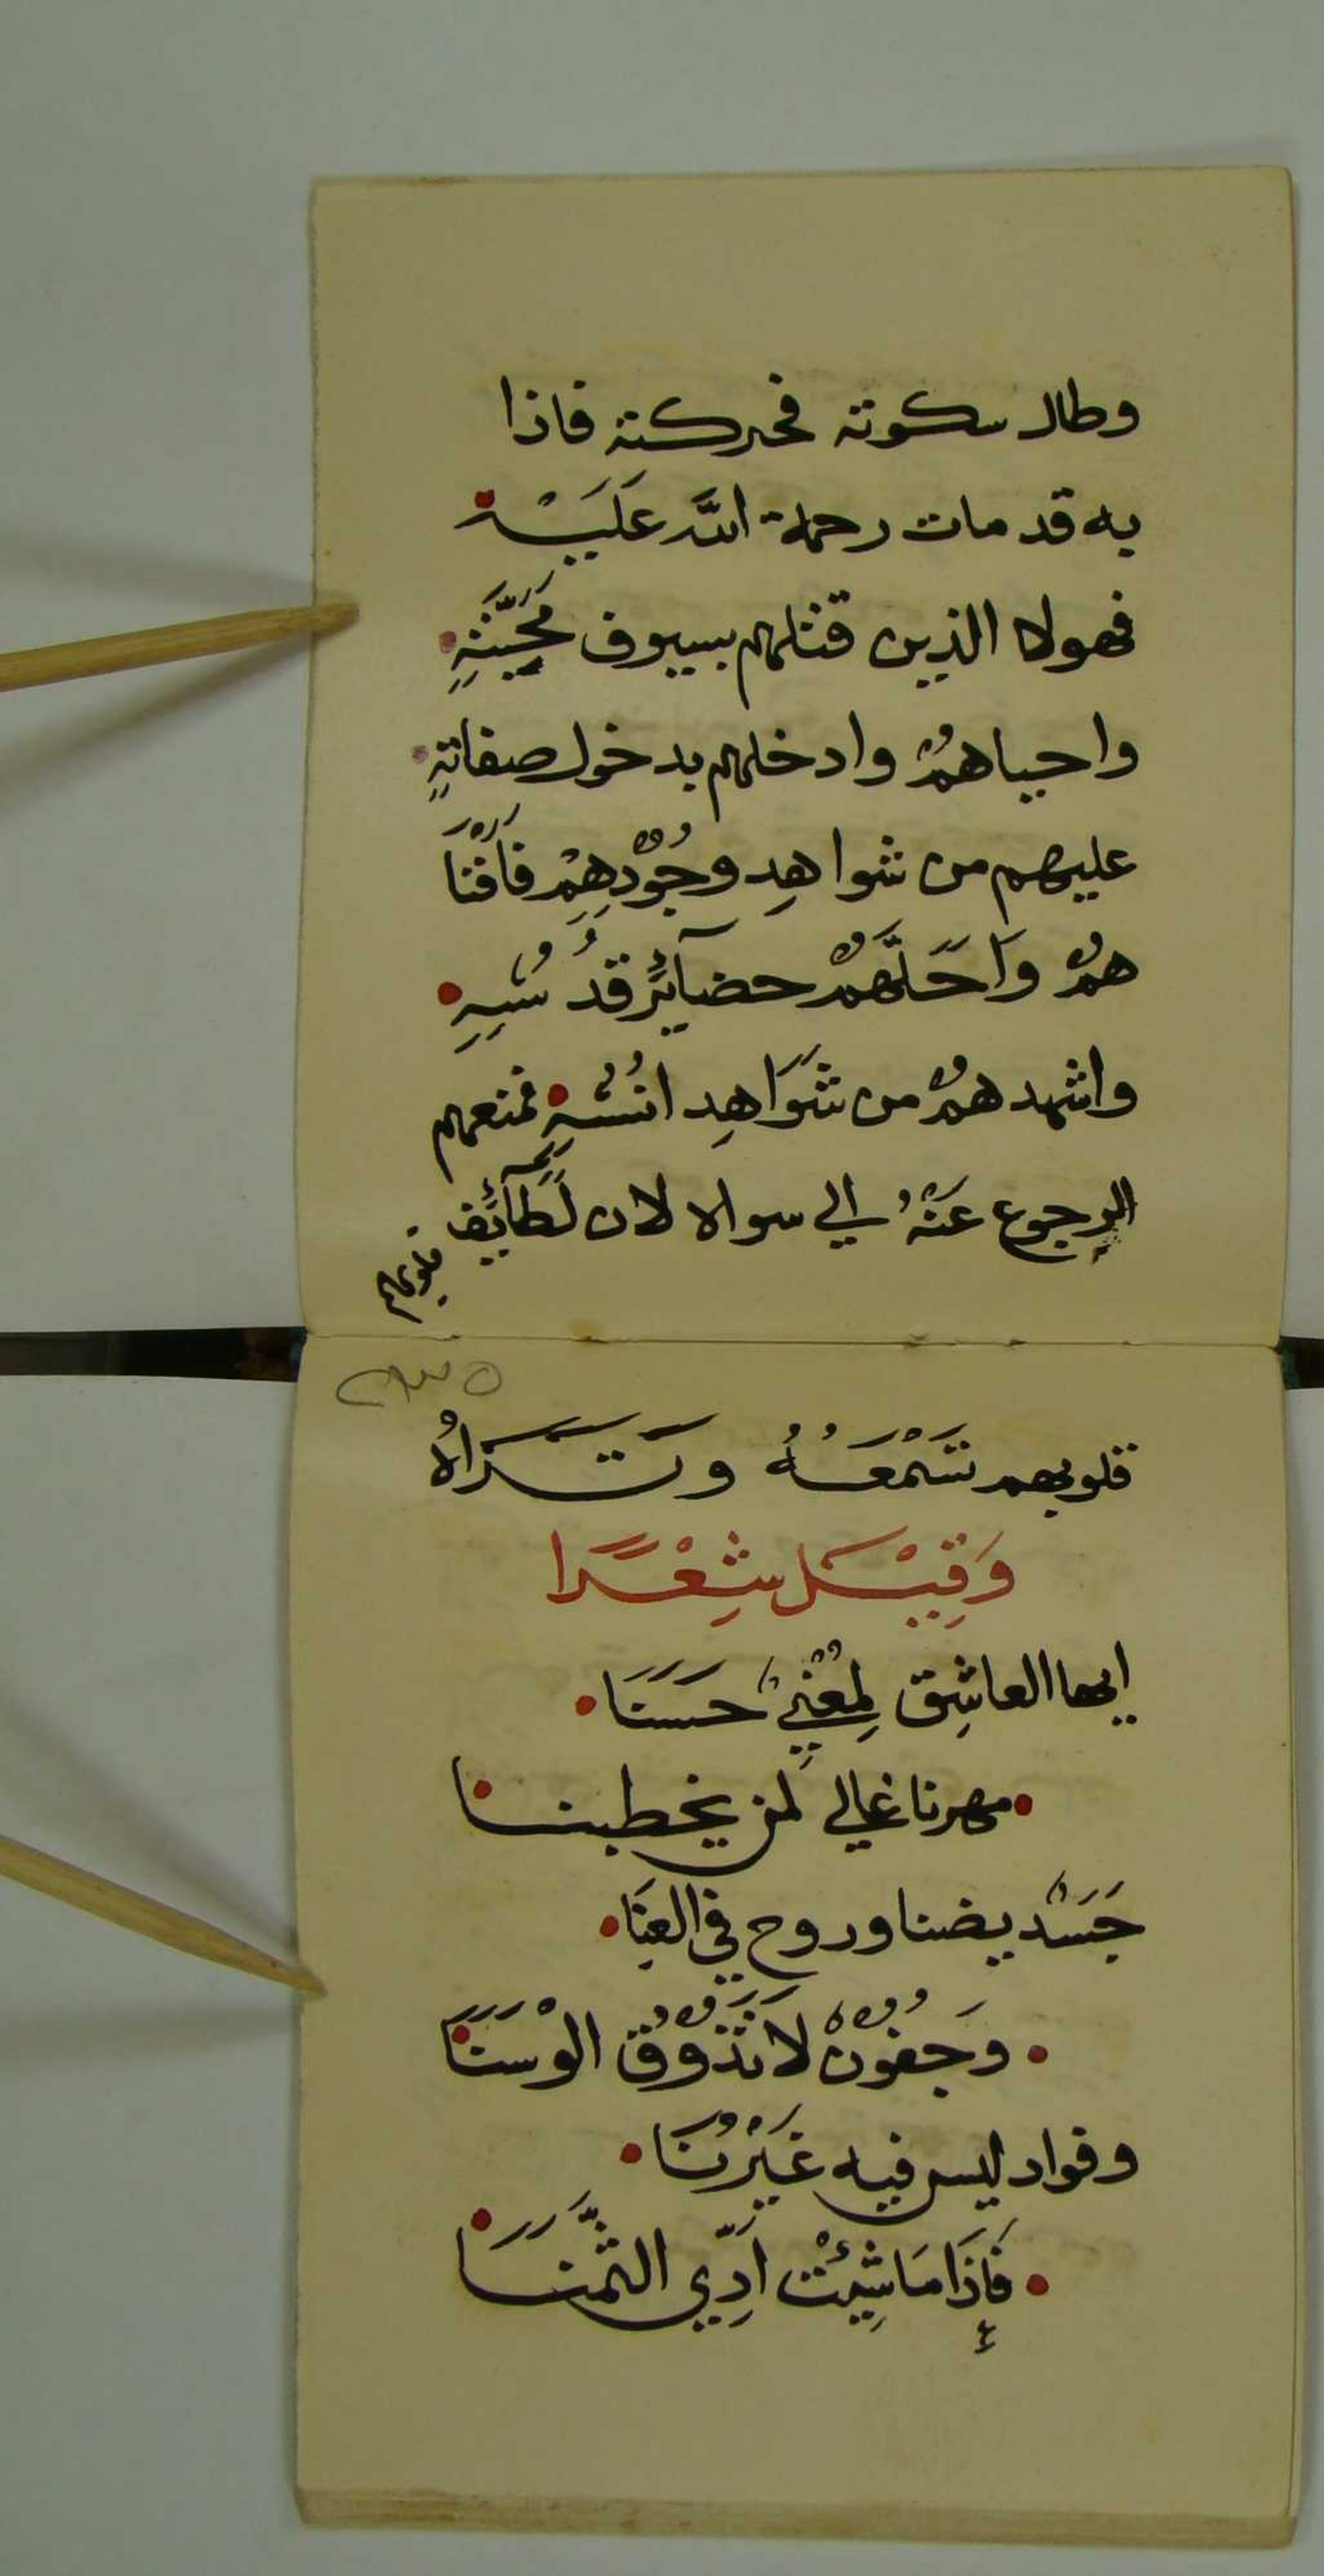 وطال سكوته فحركته فاذا
به قد مات رحمة الله عَلَيْهْ
فهولا الذين قتلهم بسيوف مَحَبَّتِهِ
واحياهمْ وادخلهم بدخول صفاتهِ
عليهم من شواهدِ وجُوْدِهِمْ فَاَفْنَا
همْ وَاَحَلَّهمْ حضآئرَ قدُسُهِ
واشهدهمْ من شَوَاهِدِ انُسْهِ فمنعهم
الرجوع عَنْهُ الي سواه لان لَطَآئِف
قلوبهم
٥٣٢
قلوبهم تَسْمَعُهُ وتَرَاهُ
وَقِيْلَ شِعْرًا
ايها العاشِق لِمَعْنِيْ حَسَنَا
مهرنا غالي لمن يخطبنا
جَسَدْ يضنا وروح في العِنَا
وَجفُونْ لَا تَذُوْقُ الوْسَنَا
وفواد ليس فيه غَيْرُنَا
فَإِذَا مَا شِئْتْ اَدِّي الثَّمَنَا